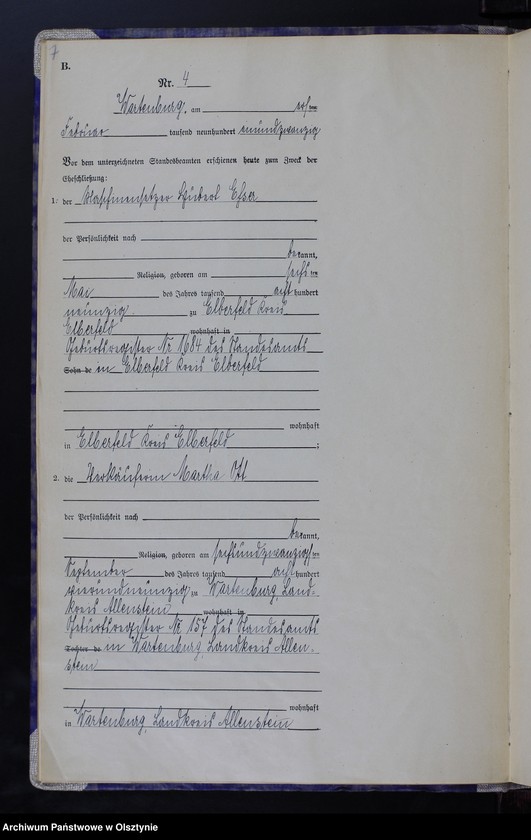 7
B.
Nr. 4
Wartenburg, am elften
Februar tausend neunhundert einundzwanzig
Vor dem unterzeichneten Standesbeamten erschienen heute zum Zweck der
Eheschließung:
1. der Maschinensetzer Esser
der Persönlichkeit nach
bekannt,
Religion, geboren am sechsten
Mai des Jahres tausend acht hundert
neunzig zu Elberfeld Kreis
Elberfeld wohnhaft in
Geburtsregister Nr 1684 des Standesamts
Sohn de in Elberfeld Kreis Elberfeld
wohnhaft
in Elberfeld Kreis Elberfeld ;
2. die Verkäuferin Martha Ott
der Persönlichkeit nach
bekannt,
Religion, geboren am sechsundzwanzigsten
September des Jahres tausend acht hundert
vierundneunzig zu Wartenburg, Land-
kreis Allenstein wohnhaft in
Geburtsregister Nr 157 des Standesamts
Tochter de in Wartenburg, Landkreis Allen-
stein
wohnhaft
in Wartenburg, Landkreis Allenstein
Archiwum Państwowe w Olsztynie